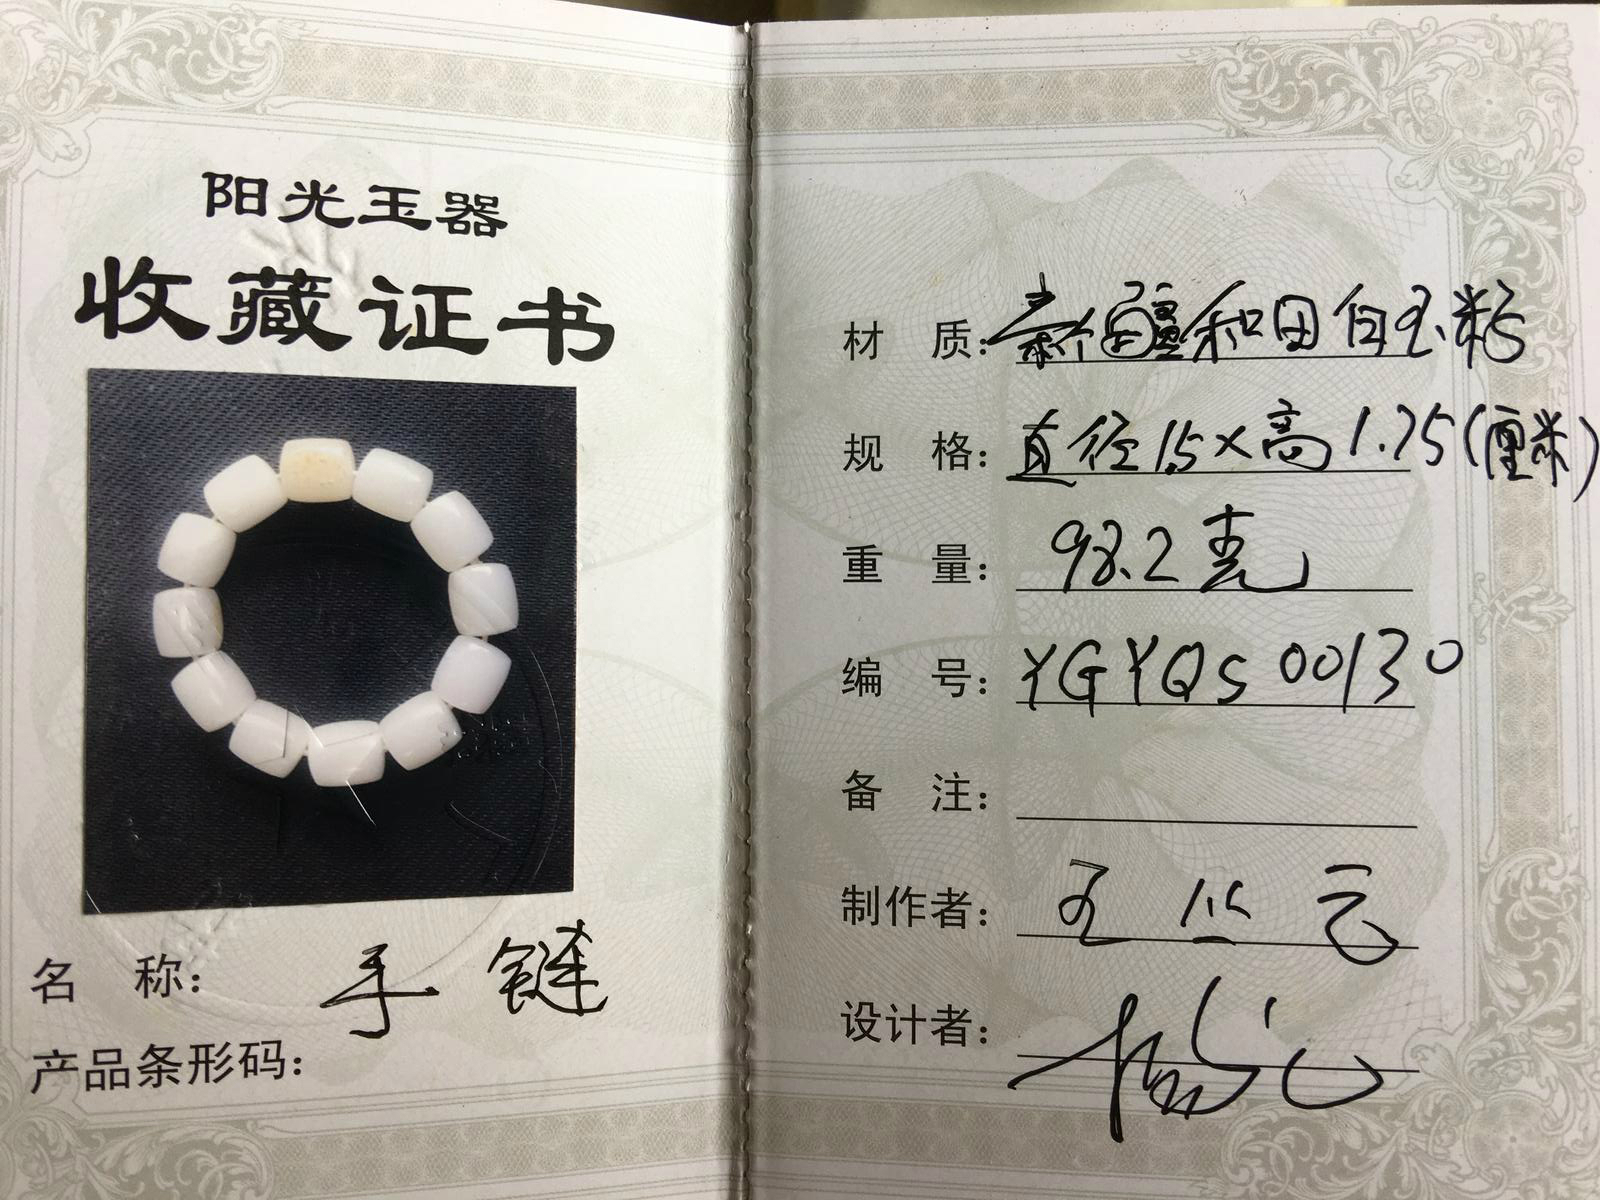 阳光玉器
收藏证书
名 称: 手 链
产品条形码:
材 质: 新疆和田白玉籽
规 格: 直径1.5×高1.75(厘米)
重 量: 98.2克
编 号: YGYQS00130
备 注:
制作者:
设计者: